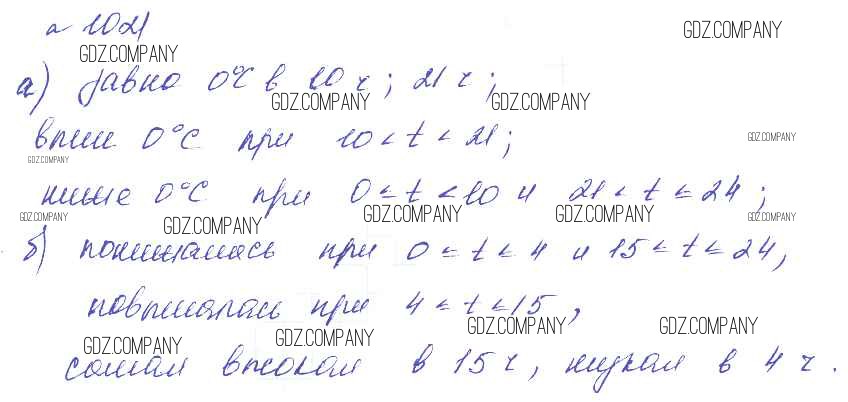 ~ 1021
GDZ.COMPANY
GDZ.COMPANY
а) равно 0°C в 10 ч; 21 ч;
GDZ.COMPANY GDZ.COMPANY
выше 0°C при 10 < t < 21;
GDZ.COMPANY
GDZ.COMPANY
ниже 0°C при 0 ≤ t < 10 и 21 < t ≤ 24;
GDZ.COMPANY GDZ.COMPANY GDZ.COMPANY GDZ.COMPANY GDZ.COMPANY
б) понижалась при 0 ≤ t ≤ 4 и 15 ≤ t ≤ 24,
повышалась при 4 ≤ t ≤ 15,
GDZ.COMPANY GDZ.COMPANY GDZ.COMPANY GDZ.COMPANY
самая высокая в 15 ч, низкая в 4 ч.